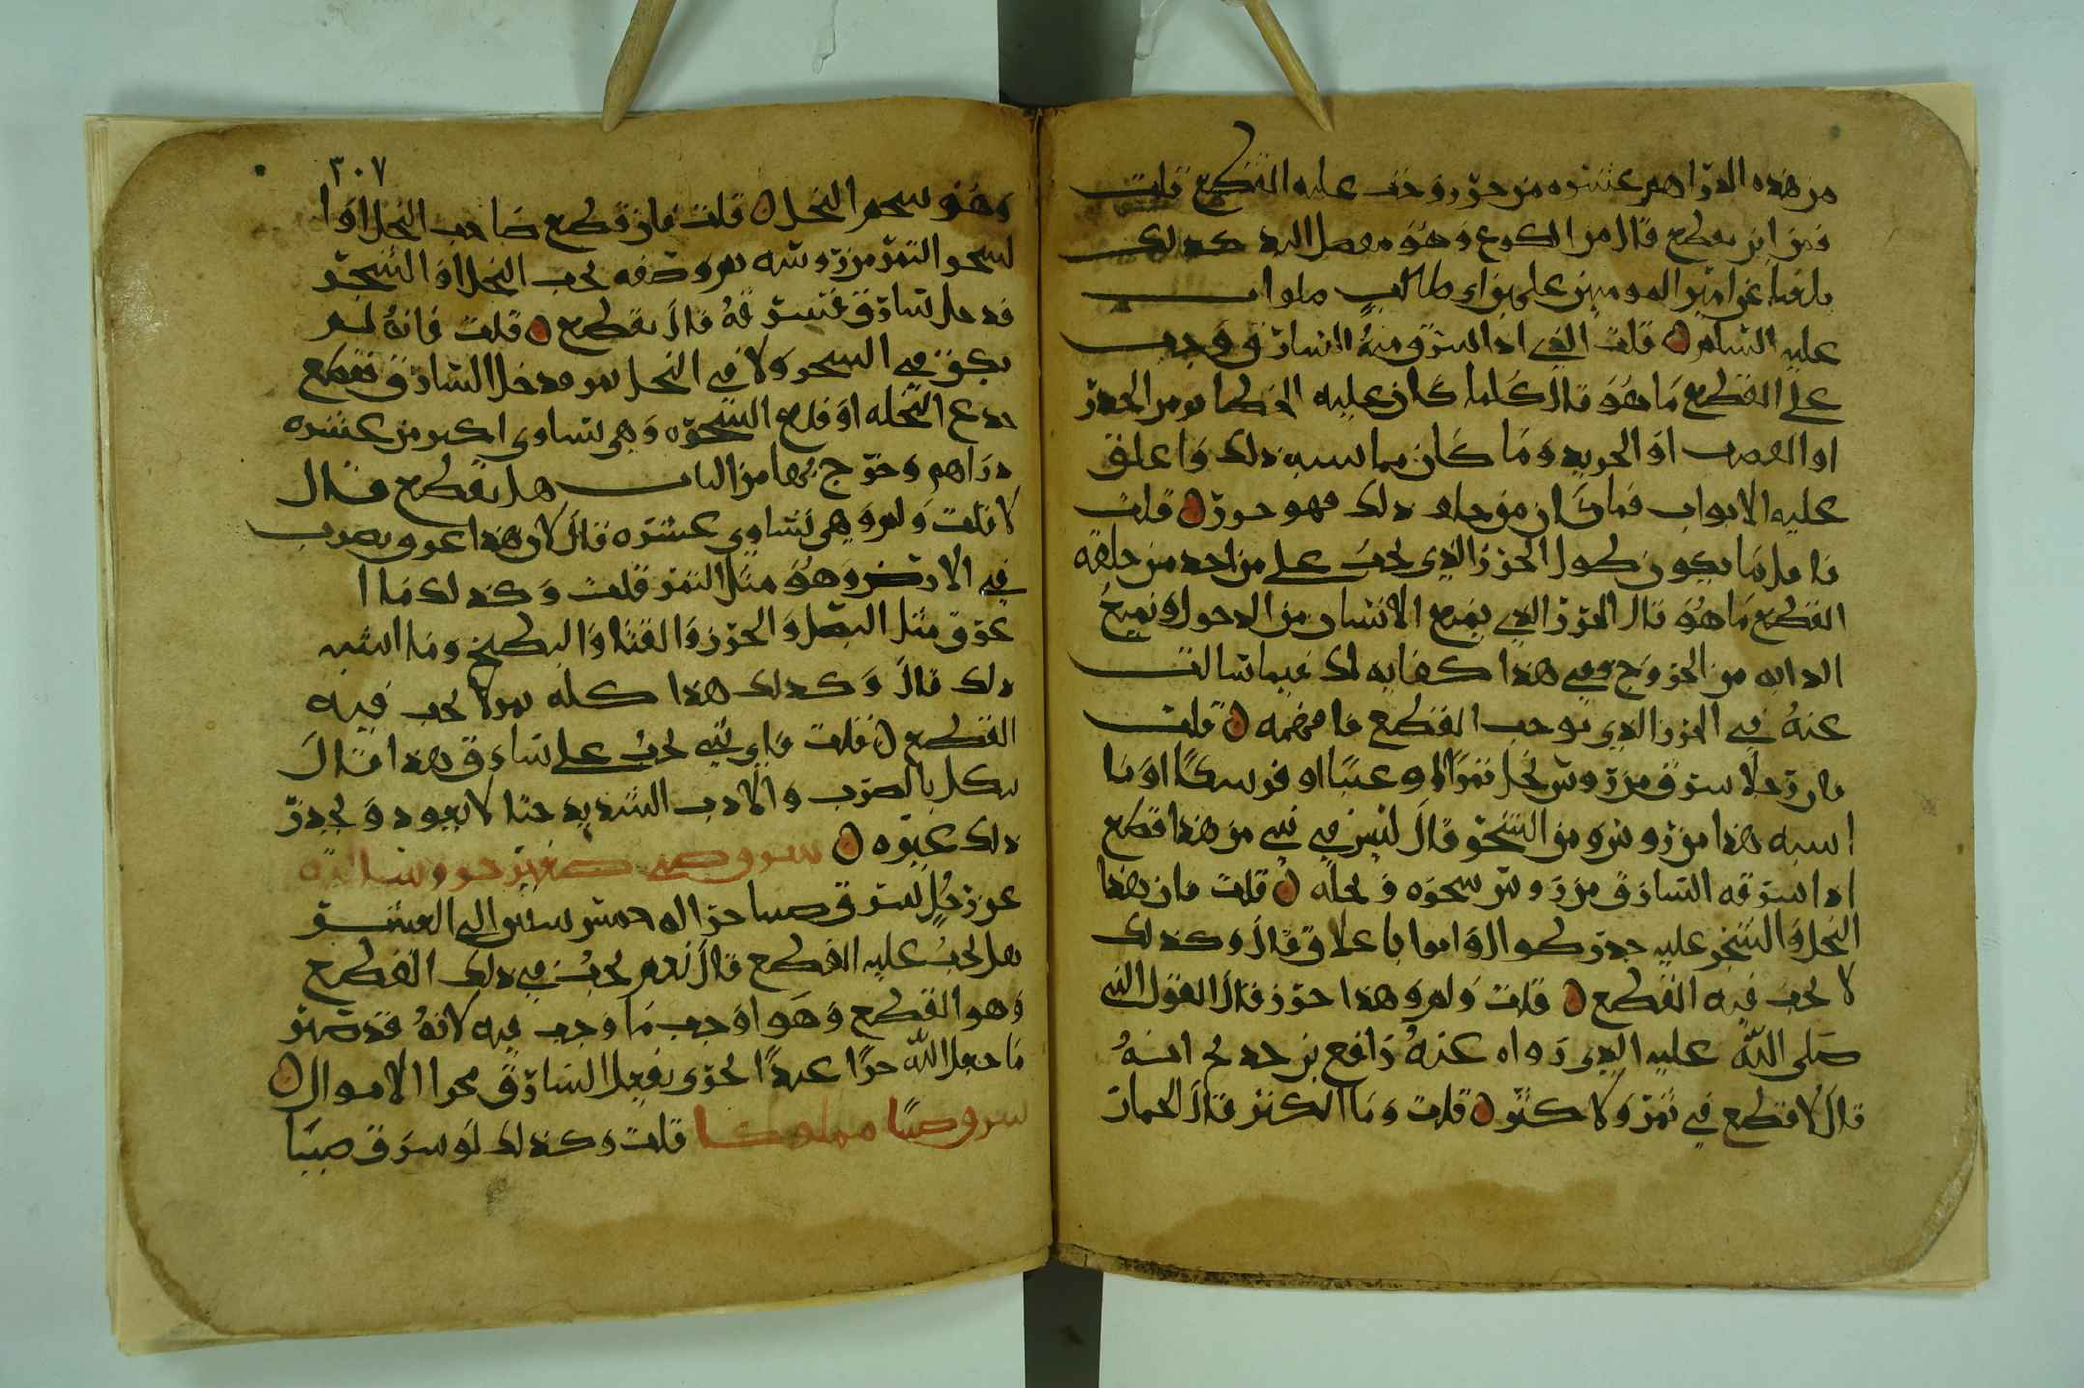 من هذه الدراهم عشره من حرز وجب عليه القطع قلت
فمن اين يقطع قال من الكوع وهو مفصل اليد كذلك
بلغنا عن امير المومنين علي بن ابي طالب صلوات
عليه السلام قلت الذي اذا سرق منه السارق وجب
على القطع ما هو قال كلما كان عليه الحظار من الجدر
او القصب او الجريد وما كان مما اشبه ذلك واغلق
عليه الابواب فما كان من داخل ذلك فهو حرز قلت
فاقل ما يكون طول الحرز الذي يجب على من اخذ من خلفه
القطع ما هو قال الحرز الذي يمنع الانسان من الدخول ويمنع
الدابه من الخروج وفي هذا كفايه لك فيما سالت
عنه في الحرز الذي يوجب القطع فافهمه قلت
فان رجلا سرق من روس نخل تمرا او عنبا او فرسكا او ما
اشبه هذا من روس من الشجر قال ليس في شي من هذا قطع
اذا سرقه السارق من روس شجره ونخله قلت فان هذا
النخل والشجر عليه جدر طوال وابواب باغلاق قال وكذلك
لا يجب فيه القطع قلت ولم وهذا حرز قال لقول النبي
صلى الله عليه الذي رواه عنه رافع بن خديج انه
قال لا قطع في ثمر ولا كثر قلت وما الكثر قال الجمار
٣٠٧
وهو شحم النخل قلت فان قطع صاحب النخل او ا
لشجر التمر من روسه ثم وضعه تحت النخل او الشجر
فدخل سارق فسرقه قال يقطع قلت فانه لم
يكن في الشجر ولا في النخل ثمر فدخل السارق فقطع
جذع النخله او قلع الشجره وهي تساوي اكثر من عشره
دراهم وخرج بها من الباب هل يقطع قال
لا قلت ولم وهي تساوي عشره قال لان هذا عروق يضرب
في الارض وهو مثل الثمر قلت وكذلك ما ا
عرق مثل البصل والجزر والقثا والبطيخ وما اشبه
ذلك قال وكذلك هذا كله ثمر لا يجب فيه
القطع قلت فاي شي يجب على سارق هذا قال
ينكل بالضرب والادب الشديد حتا لا يعود ويحذر
ذلك غيره سرق صبي صغير حر وسالته
عن رجل سرق صبيا حرا له خمس سنين الى العشر
هل يجب عليه القطع قال نعم يجب في ذلك القطع
وهو القطع وهو اوجب ما وجب فيه لانه قد صير
ما جعل الله حرا عبدا يجرى بفعل السارق مجرا الاموال
سرق صبيا مملوكا قلت وكذلك لو سرق صبيا